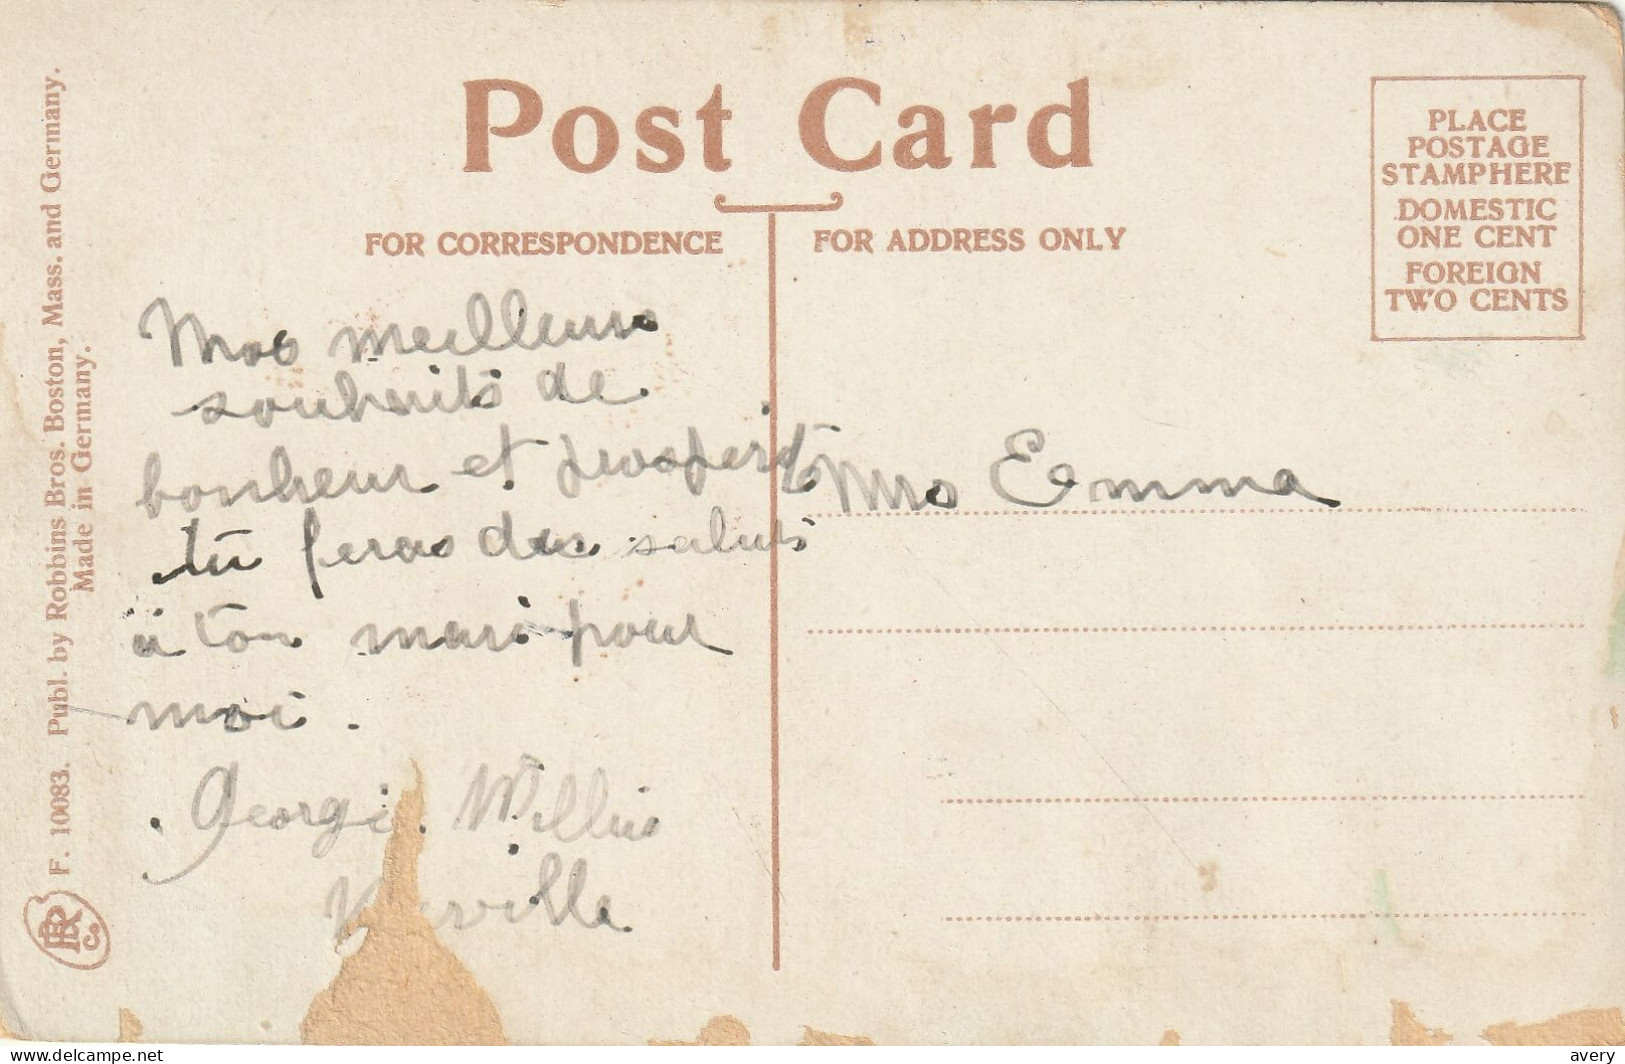 Post Card
FOR CORRESPONDENCE
FOR ADDRESS ONLY
PLACE
POSTAGE
STAMP HERE
DOMESTIC
ONE CENT
FOREIGN
TWO CENTS
Mes meilleurs
souhaits de
bonheur et prosperité
tu feras des saluts
à ton mari pour
moi.
Georgi Willis
Mrs Emma
F. 10083. Publ. by Robbins Bros. Boston, Mass. and Germany.
Made in Germany.
RB Co
avery